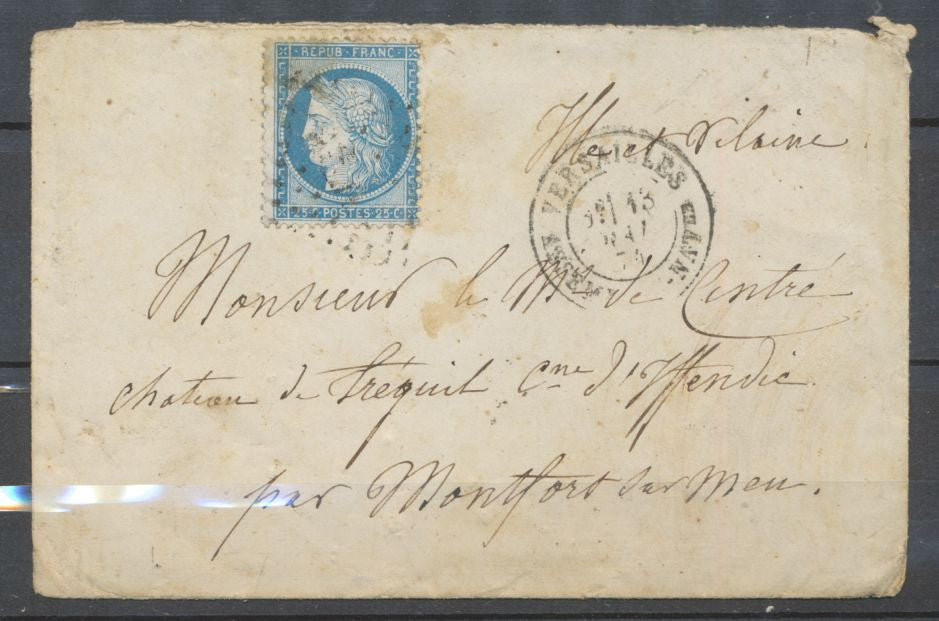 REPUB · FRANC
25 · POSTES · 25 · C
Ille et Vilaine
VERSAILLES
13
MAI
Monsieur le Mis de Cintré
chateau de Tréguil cne d'Iffendic
par Montfort sur meu.